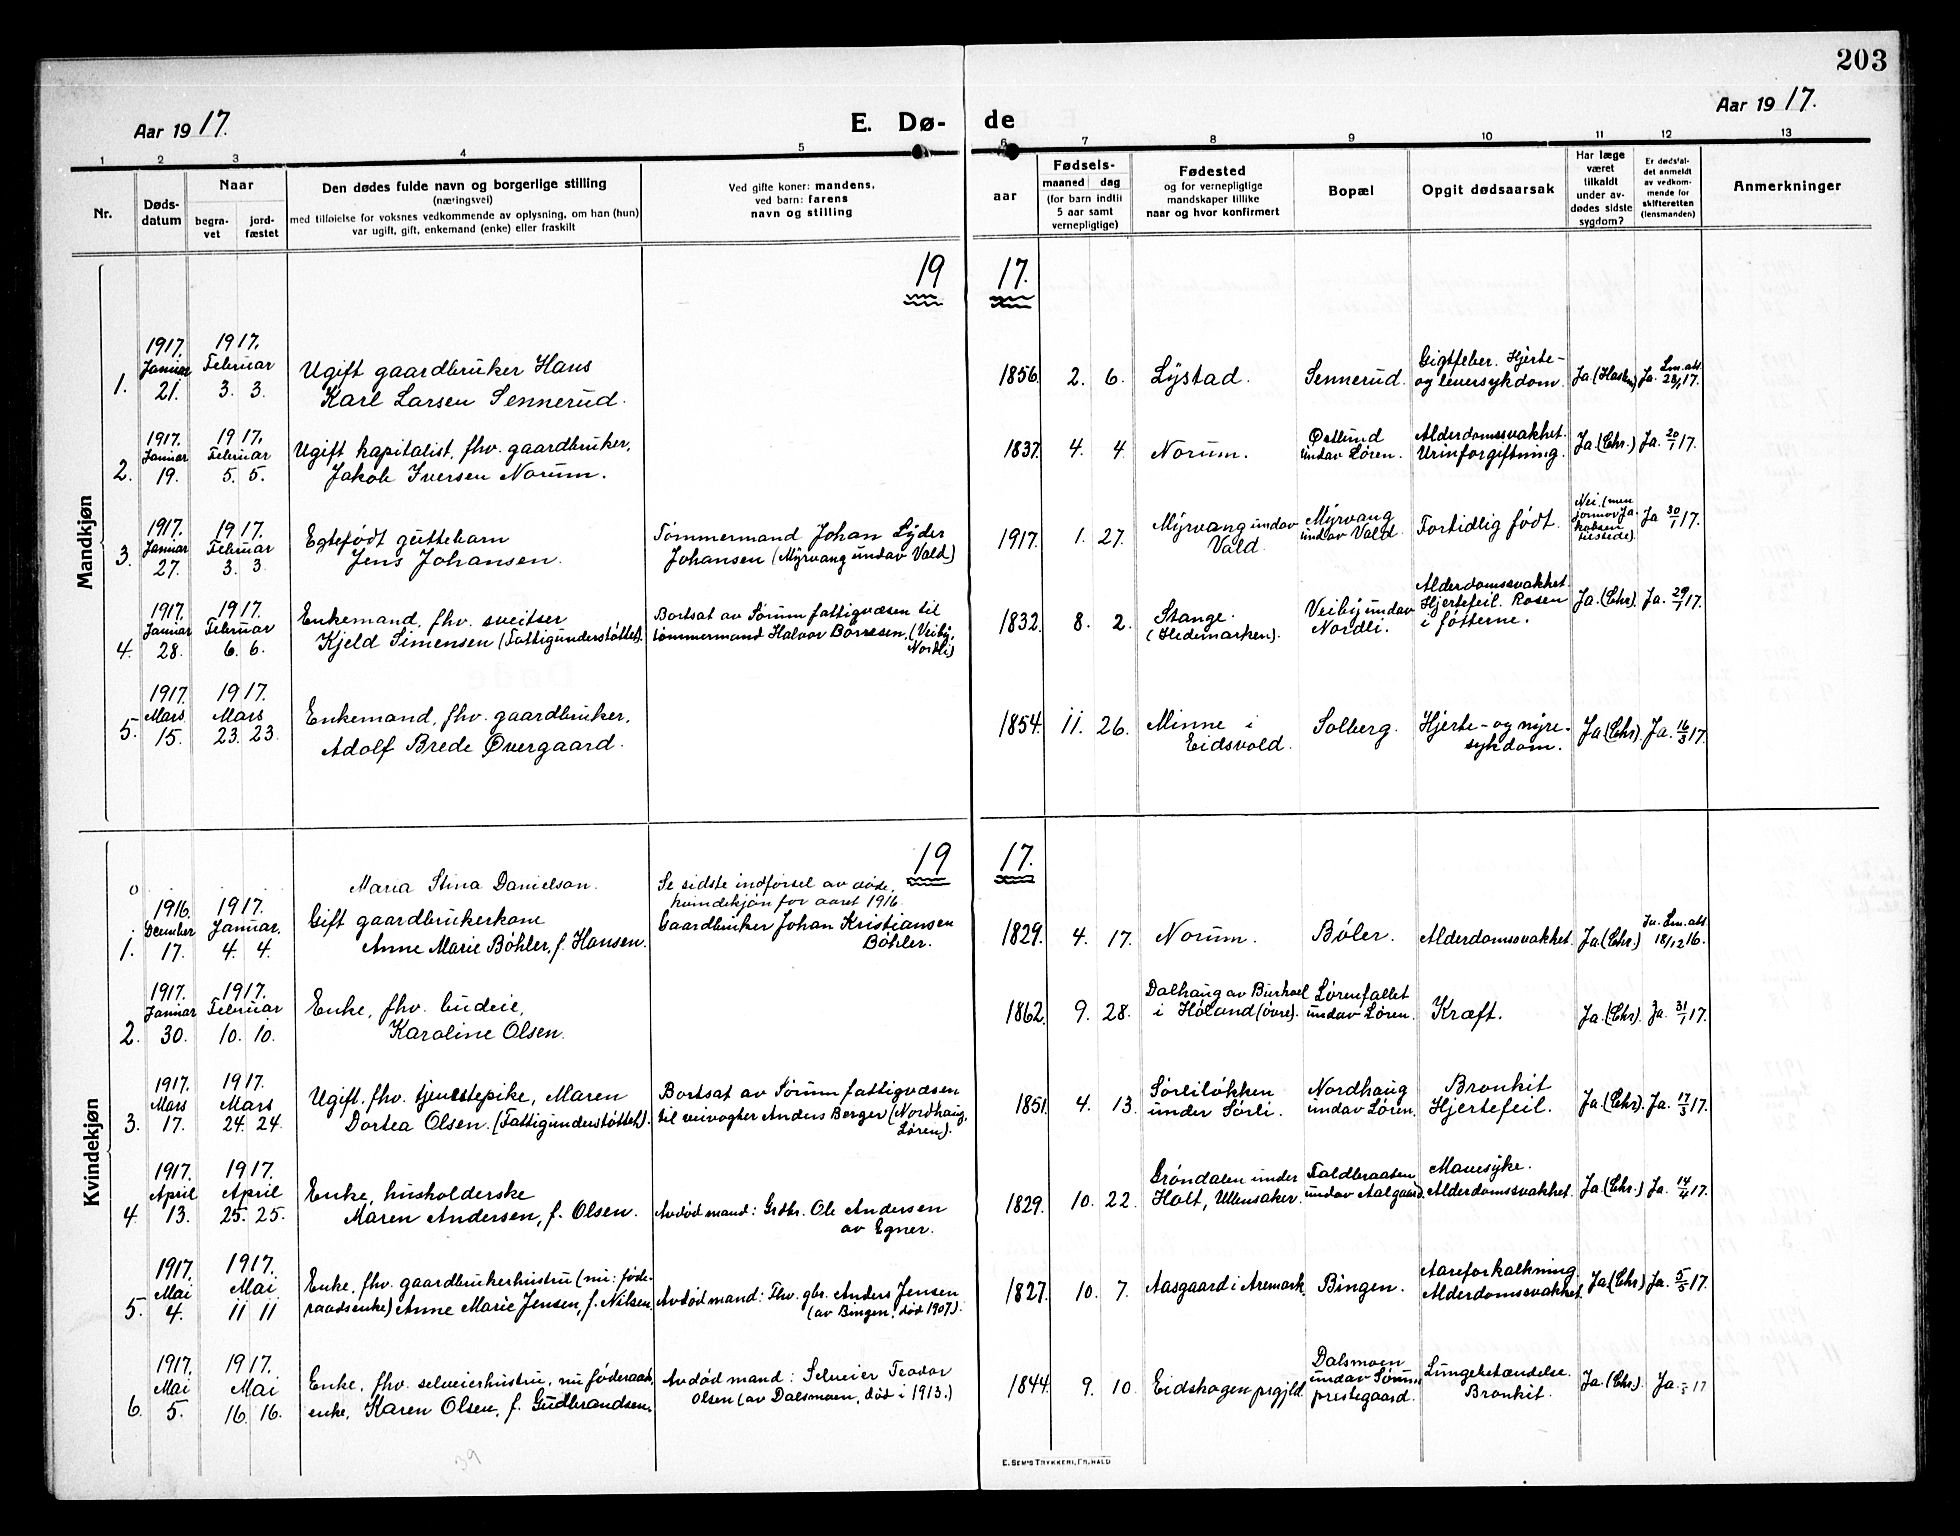 203
Aar 1917.
E. Dø-
de
Aar 1917.
1 2 3 4 5 6 7 8 9 10 11 12 13
Nr.
Døds-
datum
Naar
begra-
vet
jord-
fæstet
Den dødes fulde navn og borgerlige stilling
(næringsvei)
med tilføielse for voksnes vedkommende av oplysning, om han (hun)
var ugift, gift, enkemand (enke) eller fraskilt
Ved gifte koner: mandens,
ved barn: farens
navn og stilling
Fødsels-
aar
maaned dag
(for barn indtil
5 aar samt
vernepligtige)
Fødested
og for vernepligtige
mandskaper tillike
naar og hvor konfirmert
Bopæl
Opgit dødsaarsak
Har læge
været
tilkaldt
under av-
dødes sidste
sygdom?
Er dødsfal-
det anmeldt
av vedkom-
mende for
skifteretten
(lensmanden)
Anmerkninger
Mandkjøn
19 17.
1.
1917.
Januar
21.
1917.
Februar
3. 3.
Ugift gaardbruker Hans
Karl Larsen Sennerud.
1856. 2. 6.
Lystad.
Sennerud.
Gigtfeber. Hjerte-
og leversykdom.
Ja
Ja. Lm. att.
17.
2.
1917.
Januar
19.
1917.
Februar
5. 5.
Ugift kapitalist, fhv. gaardbruker,
Jakob Iversen Norum.
1837. 4. 4.
Norum.
Østlund
undav Løren.
Alderdomssvakhet.
Urinforgiftning.
Ja (Chr.)
Ja. 20/1 17.
3.
1917.
Januar
27.
1917.
Februar
3. 3.
Egtefødt guttebarn
Jens Johansen.
Tømmermand Johan Lyder
Johansen (Myrvang undav Vald)
1917. 1. 27.
Myrvang undav
Vald.
Myrvang
undav Vald.
Fortidlig født.
Nei. (men
jormor Ja-
kobsen
tilstede).
Ja 30/1 17.
4.
1917.
Januar
28.
1917.
Februar
6. 6.
Enkemand, fhv. sveitser
Kjeld Simensen (Fattigunderstøttet).
Bortsat av Sørum fattigvæsen til
tømmermand Halvor Borresen, (Veiby,
Nordli)
1832. 8. 2.
Stange.
(Hedemarken).
Veiby undav
Nordli.
Alderdomssvakhet.
Hjertefeil. Rosen
i føtterne.
Ja. (Chr).
Ja. 29/1 17.
5.
1917.
Mars
15.
1917.
Mars
23. 23.
Enkemand, fhv. gaardbruker,
Adolf Brede Øvergaard.
1854. 11. 26.
Minne i
Eidsvold.
Solberg.
Hjerte- og nyre-
sykdom.
Ja (Chr).
Ja. 16/3 17.
Kvindekjøn
19 17.
0
Maria Stina Danielson.
Se sidste indførsel av døde,
kvindekjøn for aaret 1916.
1.
1916.
December
17.
1917.
Januar.
4. 4.
Gift gaardbrukerkone
Anne Marie Bøhler, f. Hansen.
Gaardbruker Johan Kristiansen
Bøhler.
1829. 4. 17.
Norum.
Bøler.
Alderdomssvakhet.
Ja. (Chr.)
Ja. Lm. att.
18/12 16.
2.
1917.
Januar
30.
1917.
Februar
10. 10.
Enke, fhv. budeie,
Karoline Olsen.
1862. 9. 28.
Dalhaug av Burhoel
i Høland (øvre).
Lørenfallet
undav Løren.
Kræft.
Ja. (Chr).
Ja. 31/1 17.
3.
1917.
Mars
17.
1917.
Mars
24. 24.
Ugift. fhv. tjenestepike, Maren
Dortea Olsen. (Fattigunderstøttet).
Bortsat av Sørum fattigvæsen
til veivogter Anders Berger (Nordhaug,
Løren).
1851. 4. 13.
Sørliløkken
under Sørli.
Nordhaug
undav Løren.
Bronkit
Hjertefeil.
Ja (Chr).
Ja. 17/3 17.
4.
1917.
April
13.
1917.
April
25. 25.
Enke, husholderske
Maren Andersen, f. Olsen.
Avdød mand: Grdbr. Ole Andersen
av Egner.
1829. 10. 22.
Grøndalen under
Holt, Ullensaker.
Faldbraaten
undav Aalgaard.
Mavesyke.
Alderdomssvakhet.
Ja (Chr.)
Ja. 14/4 17.
5.
1917.
Mai
4.
1917.
Mai
11 11
Enke, fhv. gaardbrukerhustru (nu: føde-
raadsenke) Anne Marie Jensen, f. Nilsen,
Avdød mand: Fhv. gbr. Anders Jensen
(av Bingen, død 1907).
1827. 10. 7.
Aasgaard i Aremark,
Bingen.
Aareforkalkning
Alderdomssvakhet.
Ja (Chr)
Ja. 5/5 17.
6.
1917.
Mai
5.
1917.
Mai
16. 16.
Enke, fhv. selveierhustru, nu føderaads-
enke, Karen Olsen, f. Gudbrandsen.
Avdød mand: Selveier Teodor
Olsen (av Dalsmoen, død i 1913.)
1844. 9. 10.
Eidskogen prgjld.
Dalsmoen
undav Sørum
prestegaard.
Lungebetændelse.
Bronkit.
Ja. (Chr.)
Ja. 17
39
E. SEM'S TRYKKERI, FR.HALD